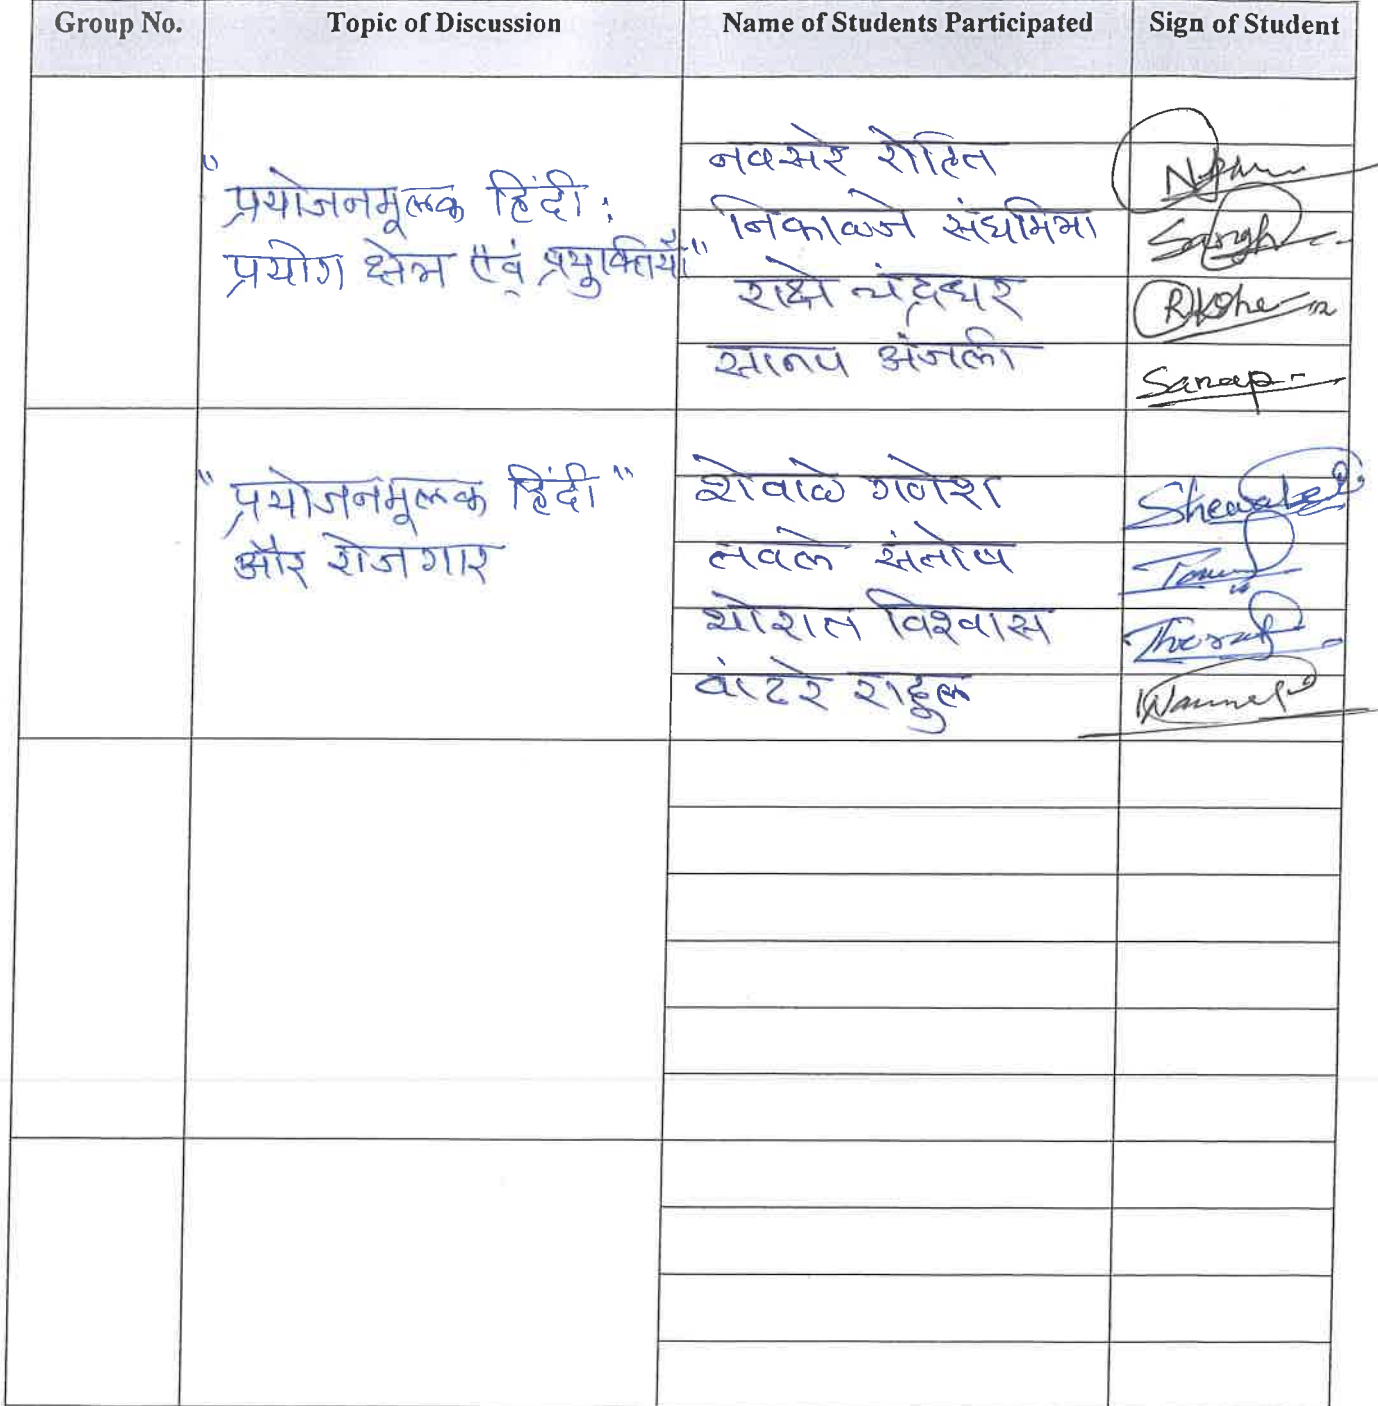 Group No. Topic of Discussion Name of Students Participated Sign of Student
"प्रयोजनमूलक हिंदी :
प्रयोग क्षेत्र एवं प्रयुक्तियाँ"
नवसरे रोहित
निकाळजे संघमित्रा
Sangh
राक्षे चंद्रधर
सानप अंजली
Sanap
"प्रयोजनमूलक हिंदी"
और रोजगार
शेवाळे गणेश
तवले संतोष
थोरात विश्वास
Thorat
वांटरे राहुल